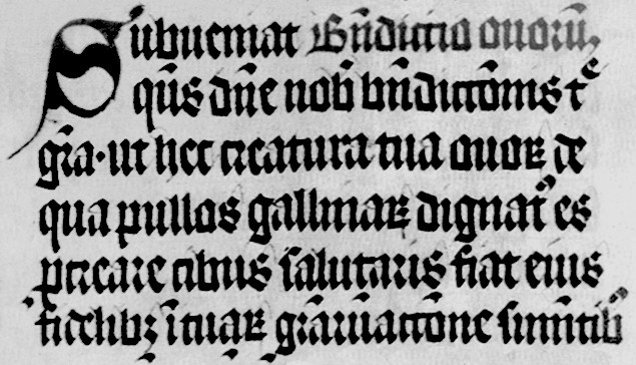 Subueniat Bn̄dictio ouorū
qūs dn̄e nob̄ bn̄dictōnis tͤ
gr̄a·ut hec creatura tua ouoꝝ de
qua pullos gallinaꝝ dignatꝰ es
ꝓcreare cibus salutaris fiat eius
fidelibꝫ ī tuaꝝ gr̄arū actione sumētibꝰ